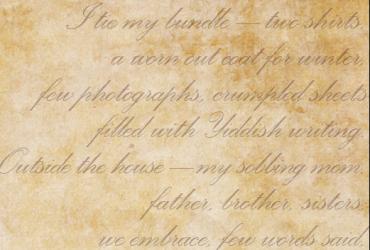 I tie my bundle — two shirts,
a worn out coat for winter,
few photographs, crumpled sheets
filled with Yiddish writing.
Outside the house — my sobbing mom,
father, brother, sisters;
we embrace, few words said,